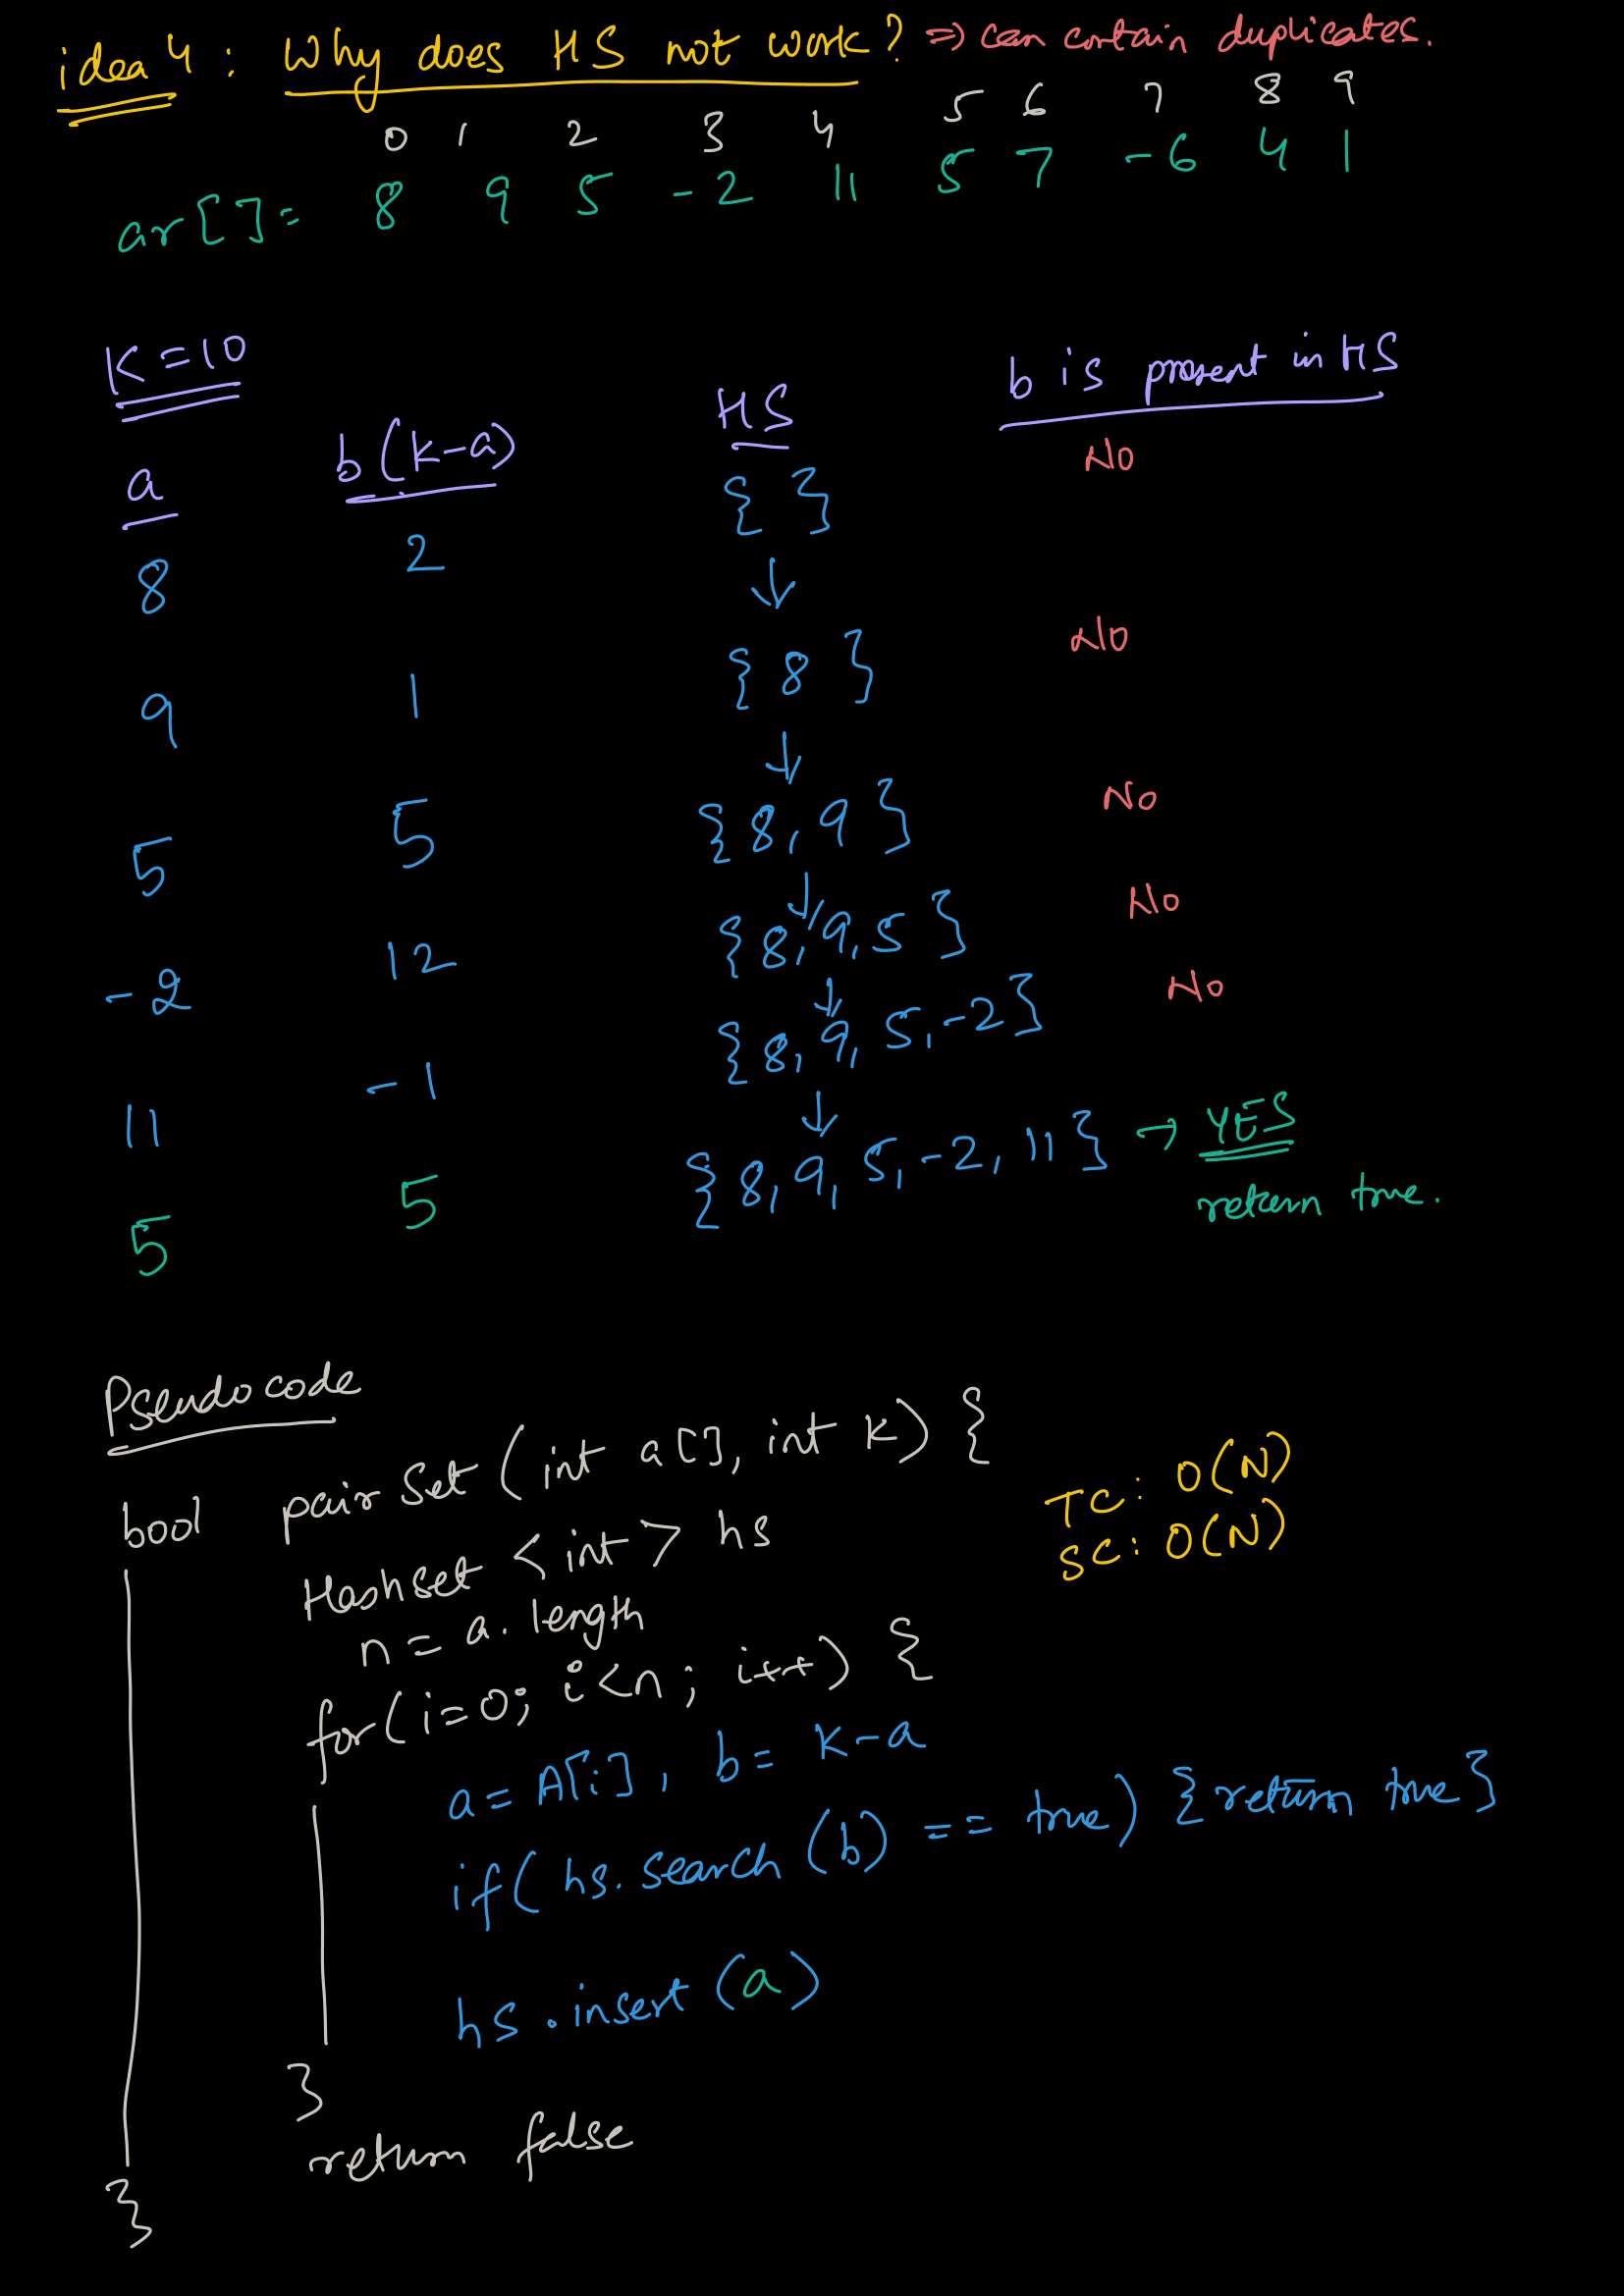 idea 4 : Why does HS not work? ⇒ can contain duplicates.
0 1 2 3 4 5 6 7 8 9
ar[]= 8 9 5 -2 11 5 7 -6 4 1
K=10
a b(k-a) HS b is present in HS
8 2 { } No
↓
9 1 { 8 } No
↓
5 5 {8, 9 } No
↓
-2 12 {8, 9, 5 } No
↓
11 -1 {8, 9, 5, -2} No
↓
5 5 {8, 9, 5, -2, 11} → YES
return true.
Pseudocode
bool pairSet (int a[], int K) {
TC: O(N)
Hashset <int> hs
SC: O(N)
n = a. length
for(i=0; i<n; i++) {
a= A[i], b= K-a
if( hs. search (b) == true) {return true}
hs .insert (a)
}
return false
}